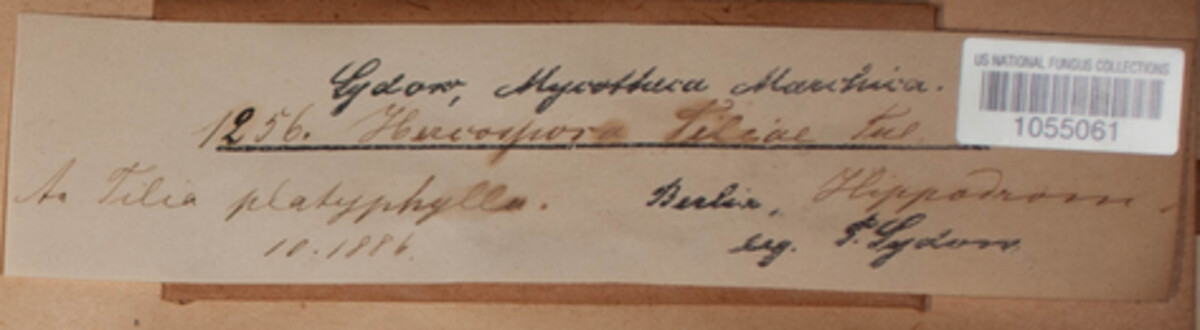 Sydow, Mycotheca Marchica.
1256. Hercospora Tiliae Tul.
An Tilia platyphylla. Berlin, Hippodrom.
10.1886. leg. P. Sydow.
US NATIONAL FUNGUS COLLECTIONS
1055061